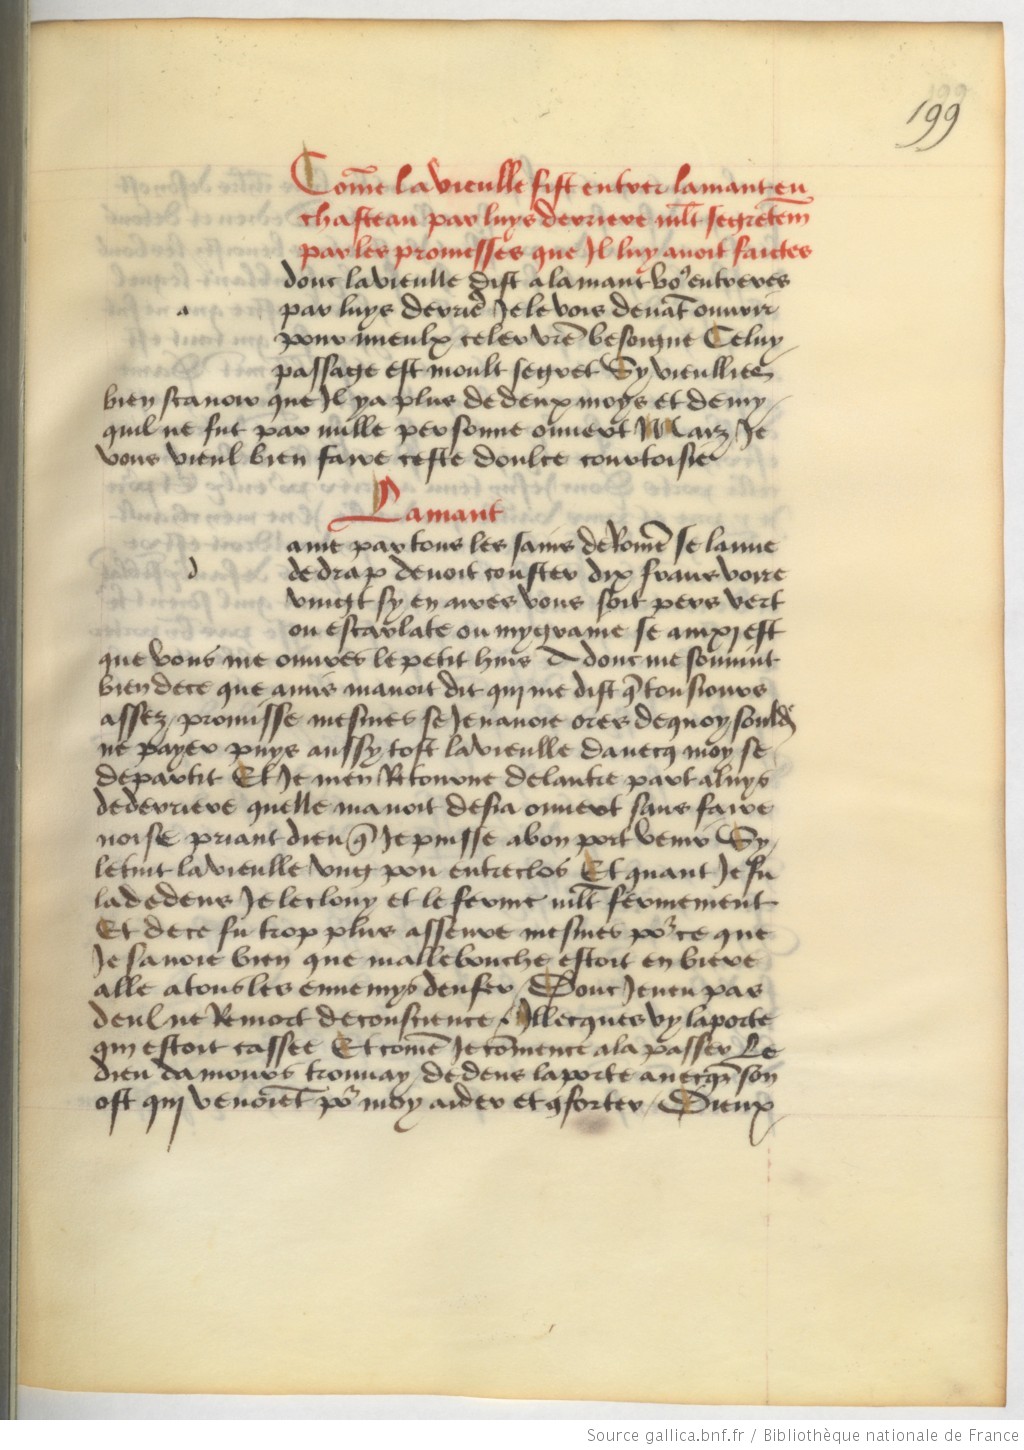 199
Come͂ la vieulle fist entrer lamant en
chasteau par luys derriere ml͂t segretem͂
par les promisses que Il luy auoit faictes
donc la vieulle dist a lamant vo9 entreres
par luys derrie͂ Je le vois deua͂t ouurir
a
pour mieulx celer vr͂e besoigne Celuy
passage est moult segret Sy vieullies
bien scauoir que Il ya plus de deux moys et demy
quil ne fut par nulle personne ouuert Marz Je
vous vieul bien faire ceste doulce courtoisie
Lamant
ame par tous les sains de Rome͂ se laune
d
de drap deuoit couster dix frans voire
vingt sy en aires vous soit pers vert
ou escarlate ou mygraine se ainxi est
que vous me ouures le petit huis A donc me souuint
bien de ce que amis mauoit dit qui me dist q͂ tousiours
assez promisse mesmes se Je nauoie ores de quoy souldr͂
ne payer puys aussy tost la vieulle dauecq moy se
departit Et Je men Retourne de lautre part a luys
de derriere quelle mauoit desia ouuert sans faire
noise priant dieu q͂ Je puisse a bon port venir Sy
le tint la vieulle vng pou entreclos Et quant Je fu
la dedens Je le clouy et le ferme ml͂t fermement
Et de ce fu trop plus asseure mesmes po2 ce que
Je sauoie bien que mallebouche estoit en biere
alle a tous les ennemys denfer / Donc Je neu pas
deul ne Remort de conscience / Illecques vy la porte
qui estoit cassee Et come͂ Je co͂mence a la passer Le
dieu damours trouuay dedens la porte auecq͂s son
ost qui venoie͂t po2 moy aider et 9forter / Dieux
Source gallica.bnf.fr / Bibliothèque nationale de France